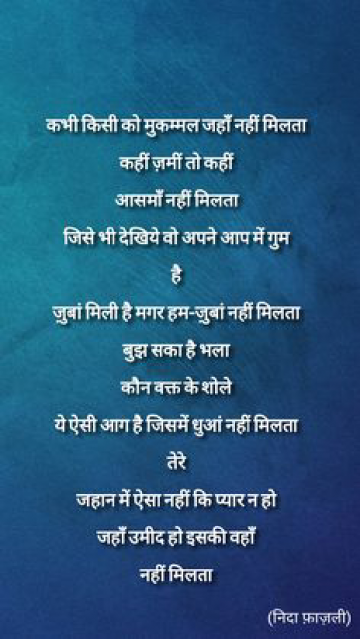 कभी किसी को मुकम्मल जहाँ नहीं मिलता
कहीं ज़मीं तो कहीं
आसमाँ नहीं मिलता
जिसे भी देखिये वो अपने आप में गुम
है
ज़ुबां मिली है मगर हम-ज़ुबां नहीं मिलता
बुझ सका है भला
कौन वक्त के शोले
ये ऐसी आग है जिसमें धुआं नहीं मिलता
तेरे
जहान में ऐसा नहीं कि प्यार न हो
जहाँ उमीद हो इसकी वहाँ
नहीं मिलता
(निदा फ़ाज़ली)